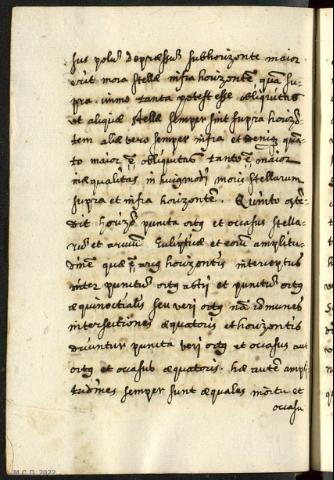 sus polus depressus subhorizonte maior
erit mora stellæ infra horizontẽ quam su-
pra. immo tanta potest esse obliquitas
ut aliquæ stellæ semper sint supra horizõ-
tem aliæ vero semper infra et deniqȝ quã-
to maior ẽ obliquitas tanto ẽ maior
inæqualitas in huiusmodi moris stellarum
supra et infra horizontem. Quinto osten-
dit horizõ puncta ortꝯ et occasus stella-
rũ et arcuum eclipticæ et eorũ amplitu-
dinẽ quæ ẽ arcꝯ horizontis interceptus
inter punctum ortꝯ astri et punctũ ortꝯ
æquinoctialis seu veri ortꝯ nam cõmunes
intersectiones æquatoris et horizontis
dicuntur puncta veri ortꝯ et occasus aut
ortꝯ et occasus æquatoris. hæ autẽ ampli-
tudines semper sunt æquales
et
occasu
M.C.D. 2022